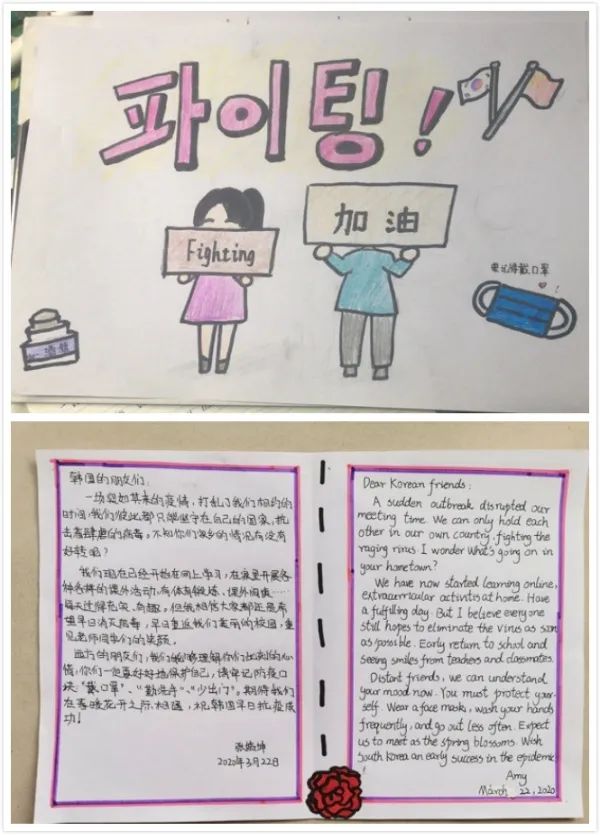 파이팅!
Fighting
加油
要记得戴口罩!
酒精
韩国的朋友们:
一场突如其来的疫情,打乱了我们相约的
时间,我们彼此都只能坚守在自己的国家,抗
击着肆虐的病毒。不知你们家乡的情况有没有
好转呢?
我们现在已经开始在网上学习,在家里开展各
种各样的课外活动,有体育锻炼、课外阅读……
每天过得充实、有趣。但我相信大家都还是希
望早日消灭病毒,早日重返我们美丽的校园,重
见老师同学们的笑颜。
远方的朋友们,我们能够理解你们此刻的心
情,你们一定要好好地保护自己,请牢记防疫口
诀"戴口罩"、"勤洗手"、"少出门",期待我们
在春暖花开之际相遇,祝韩国早日抗疫成
功!
2020年3月22日
Dear Korean friends:
A sudden outbreak disrupted our
meeting time. We can only hold each
other in our own country, fighting the
raging virus. I wonder what's going on in
your hometown?
We have now started learning online,
extracurricular activities at home. Have
a fulfilling day. But I believe everyone
still hopes to eliminate the virus as soon
as possible. Early return to school and
seeing smiles from teachers and classmates.
Distant friends, we can understand
your mood now. You must protect your-
self. Wear a face mask, wash your hands
frequently, and go out less often. Expect
us to meet as the spring blossoms. Wish
South Korea an early success in the epidemic
!
Amy
March 22, 2020